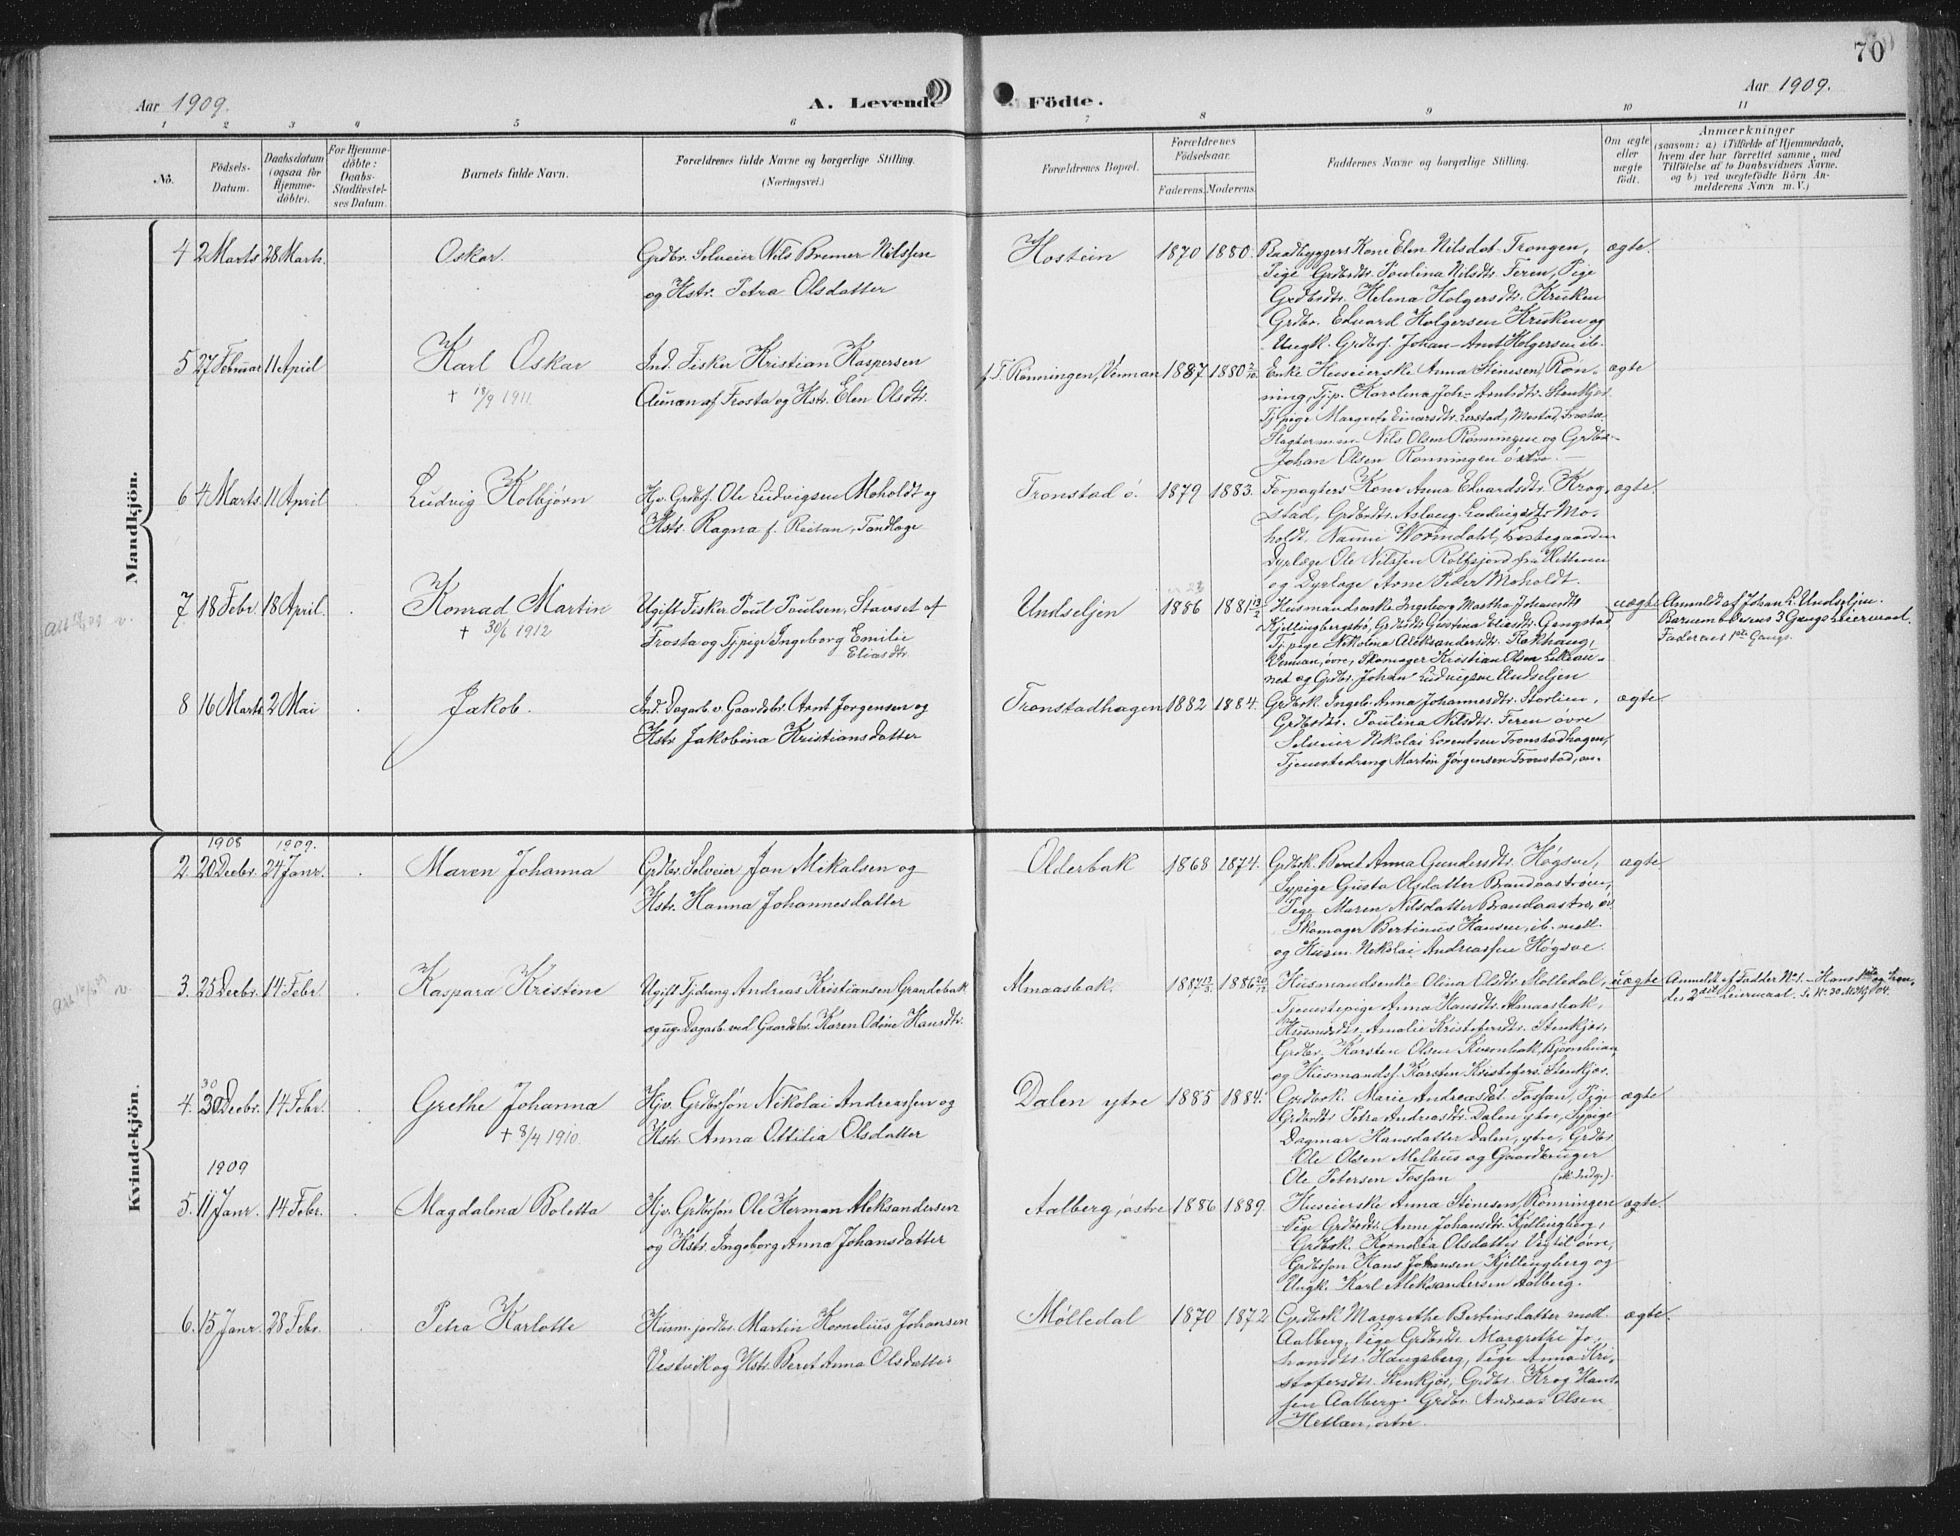 70
Aar 1909.
A. Levende Födte.
Aar 1909.
1 2 3 4 5 6 7 8 9 10 11
No.
Födsels-Datum.
Daabsdatum (ogsaa for Hjemmedöbte).
For Hjemmedöbte: Daabs-Stadfæstelses Datum.
Barnets fulde Navn.
Forældrenes fulde Navne og borgerlige Stilling. (Næringsvei.)
Forældrenes Bopæl.
Forældrenes Födselsaar.
Faderens. Moderens.
Faddernes Navne og borgerlige Stilling.
Om ægte eller uægte födt.
Anmærkninger (saasom: a) i Tilfælde af Hjemmedaab, hvem der har forrettet samme, med Tilföielse af to Daabsvidners Navne. og b) ved uægtefödte Börn Anmelderens Navn m. V.)
Mandkjön.
4 2 Marts 28 Marts. Oskar. Grdbr. Selveier Nils Bremer Nilssen
og Hstr. Petra Olsdatter
Hostein 1870 1880. Brødbyggers Kone Elen Nilsdat. Trongen, ægte.
Pige Grdbrdtr. Paulina Nilsdtr. Feren, Pige
Grdbrdtr. Helena Holgersdtr. Kruken
Grdbr. Edvard Holgersen Kruken og
Ungk. Grdbrs. Johan-Arnt Holgersen ib.
5 27 Februar 11 April Karl Oskar
+ 19/9 1911.
Ind. Fisker Kristian Kaspersen
Aunan af Frosta og Hstr. Elen Olsdtr.
f. T. Rønningen, Venman 1887 1880 Enke Huseierske Anna Stinesen, Røn- ægte
ning, Tjp. Karolina Joh-Arntsdtr. Stenkjer
Tjpige Margrete Einarsdtr. Lerstad, Mostad, Frosta
Slagter m.m. Nils Olsen Rønningen og Grdbr.
Johan Olsen Rønningen östre.
6 4 Marts 11 April Ludvig Kolbjørn Hv. Grdbrs. Ole Ludvigsen Moholdt og
Hstr. Ragna f. Reitan, Tandlæge
Tronstad ö. 1879 1883. Forpagters Kone Anna Edvardsdtr. Krog- ægte.
stad, Grdbrdtr. Aslaug Ludvigsdtr. Mo-
holdt, Nanni Wormdahl, Prestegaarden
Dyrlæge Ole Nilssen Rolfsjord fra Hitteren
og Dyrlæge Arne Peder Moholdt.
7 18 Febr. 18 April. Konrad Martin
+ 30/6 1912
Ugift Fisker Poul Poulsen, Stavset af
Frosta og Tjpige Ingeborg Emilie
Eliasdtr.
Undseljen 1886 1881 Husmandsenke Ingeborg Martha Johansdtr uægte
Kjellingbergsho, Grdbrdtr Gustina Eliasdtr Gangstad
Tjpige Nikolina Aleksandersdtr. Rokhaug,
Venman, övre, Skomager Kristian Olsen
og Grdbr. Johan Ludvigsen Undseljen
Anmeldt af Johan L. Undseljen.
Barnemoderens 3 Gangs Leiermaal.
Faderens 1ste Gangs.
8 16 Marts 2 Mai Jakob. Ind. Dagarb. v. Gaardsbr. Arnt Jørgensen og
Hstr. Jakobina Kristiansdatter
Tronstadhagen 1882 1884. Grdbrk. Ingeb. Anna Johannesdtr. Storlien, ægte.
Grdbrdtr. Paulina Nilsdtr. Feren övre
Selveier Nikolai Lorentsen Tronstadhagen,
Tjenestedreng Martin Jørgensen Tronstad, ön.
Kvindekjön.
1908 1909.
2. 20 Decbr. 24 Janr. Maren Johanna Grdbr. Selveier Jon Mikalsen og
Hstr. Hanna Johannesdatter
Olderbak 1868 1874. Grdbrk. Beret Anna Gundersdtr. Høgsve, ægte
Sypige Gusta Olsdatter Brandaastrøen,
Pige Maren Nilsdatter Brandaastrø, öv
Skomager Bertinus Hansen, ib. mell.
og Husm. Nikolai Andreassen Høgsve.
3. 25 Decbr. 14 Febr. Kaspara Kristine Ugift Tjdreng Andreas Kristiansen Grandebak
og ug. Dagarb. ved Gaardsbr. Karen Odine Hansdtr.
Almaasbak. 1887 1886 Husmandsenke Olina Olsdtr. Molledal, uægte
Tjenestepige Anna Hansdtr. Almaasbak,
Husmdtr. Amalie Kristofersdtr. Stenkjer,
Grdbr. Karsten Olsen Kvernbak, Bjørnheian,
og Husmandsf. Karsten Kristofers. Stenkjer.
Anmeldt af Fadder No 1. - Hans 1ste og hen-
des 2det Leiermaal. S. No. 30 Mdkj. 04.
30
4. 30 Decbr. 14 Febr. Grethe Johanna
+ 8/4 1910.
Hjv. Grdbrsøn Nikolai Andreassen og
Hstr. Anna Ottilia Olsdatter
Dalen ytre 1885 1884. Grdbrk. Marie Andreasdat. Fossan, Pige ægte
Grdbrdtr Petra Andreasdtr. Dalen ytre, Sypige
Dagmar Hansdatter Dalen, ytre, Grdbr.
Ole Olsen Melhus og Gaardbruger
Ole Petersen Fossan
1909
5. 11 Janr. 14 Febr. Magdalena Boletta Hjv. Grdbrsøn Ole Herman Aleksandersen
og Hstr. Ingeborg Anna Johansdatter
Aalberg, östre 1886 1889. Huseierske Anna Stinesen, Rønningen ægte.
Pige Grdbrdtr. Anne Johansdtr. Kjellingberg,
Grdbrk. Kornelia Olsdatter Vigtil övre,
Grdbrsøn Hans Johansen Kjellingberg og
Ungk. Karl Aleksandersen Aalberg.
6. 15 Janr. 28 Febr. Petra Karlotte Husm. jordbr. Martin Kornelius Johansen
Vestvik og Hstr. Beret Anna Olsdatter
Mölledal 1870 1872 Grdbrk Margrethe Bertinsdatter mell. ægte.
Aalberg, Pige Grdbrdtr. Margrethe Jo-
hansdtr. Haugsberg, Pige Anna Kri-
stofersdtr. Stenkjer, Grdbr. Krog Hans-
sen Aalberg. Grdbr. Andreas Olsen
Hetlan, östre.